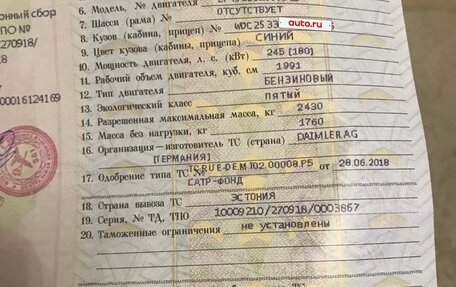 онный сбор
ПО №
/270918/
6. Модель, № двигателя
7. Шасси (рама) № ОТСУТСТВУЕТ
8. Кузов (кабина, прицеп) № WDC2533
auto.ru
9. Цвет кузова (кабины, прицепа) СИНИЙ
10. Мощность двигателя, л. с. (кВт) 245 (180)
11. Рабочий объем двигателя, куб. см 1991
12. Тип двигателя БЕНЗИНОВЫЙ
13. Экологический класс ПЯТЫЙ
00016124169
14. Разрешенная максимальная масса, кг 2430
15. Масса без нагрузки, кг 1760
16. Организация—изготовитель ТС (страна) DAIMLER AG
(ГЕРМАНИЯ)
17. Одобрение типа ТС № TC RU E-DE.МТ02.00008.P5 от 28.06.2018
САТР-ФОНД
18. Страна вывоза ТС ЭСТОНИЯ
19. Серия, № ТД, ТПО 10009210/270918/0003867
20. Таможенные ограничения не установлены